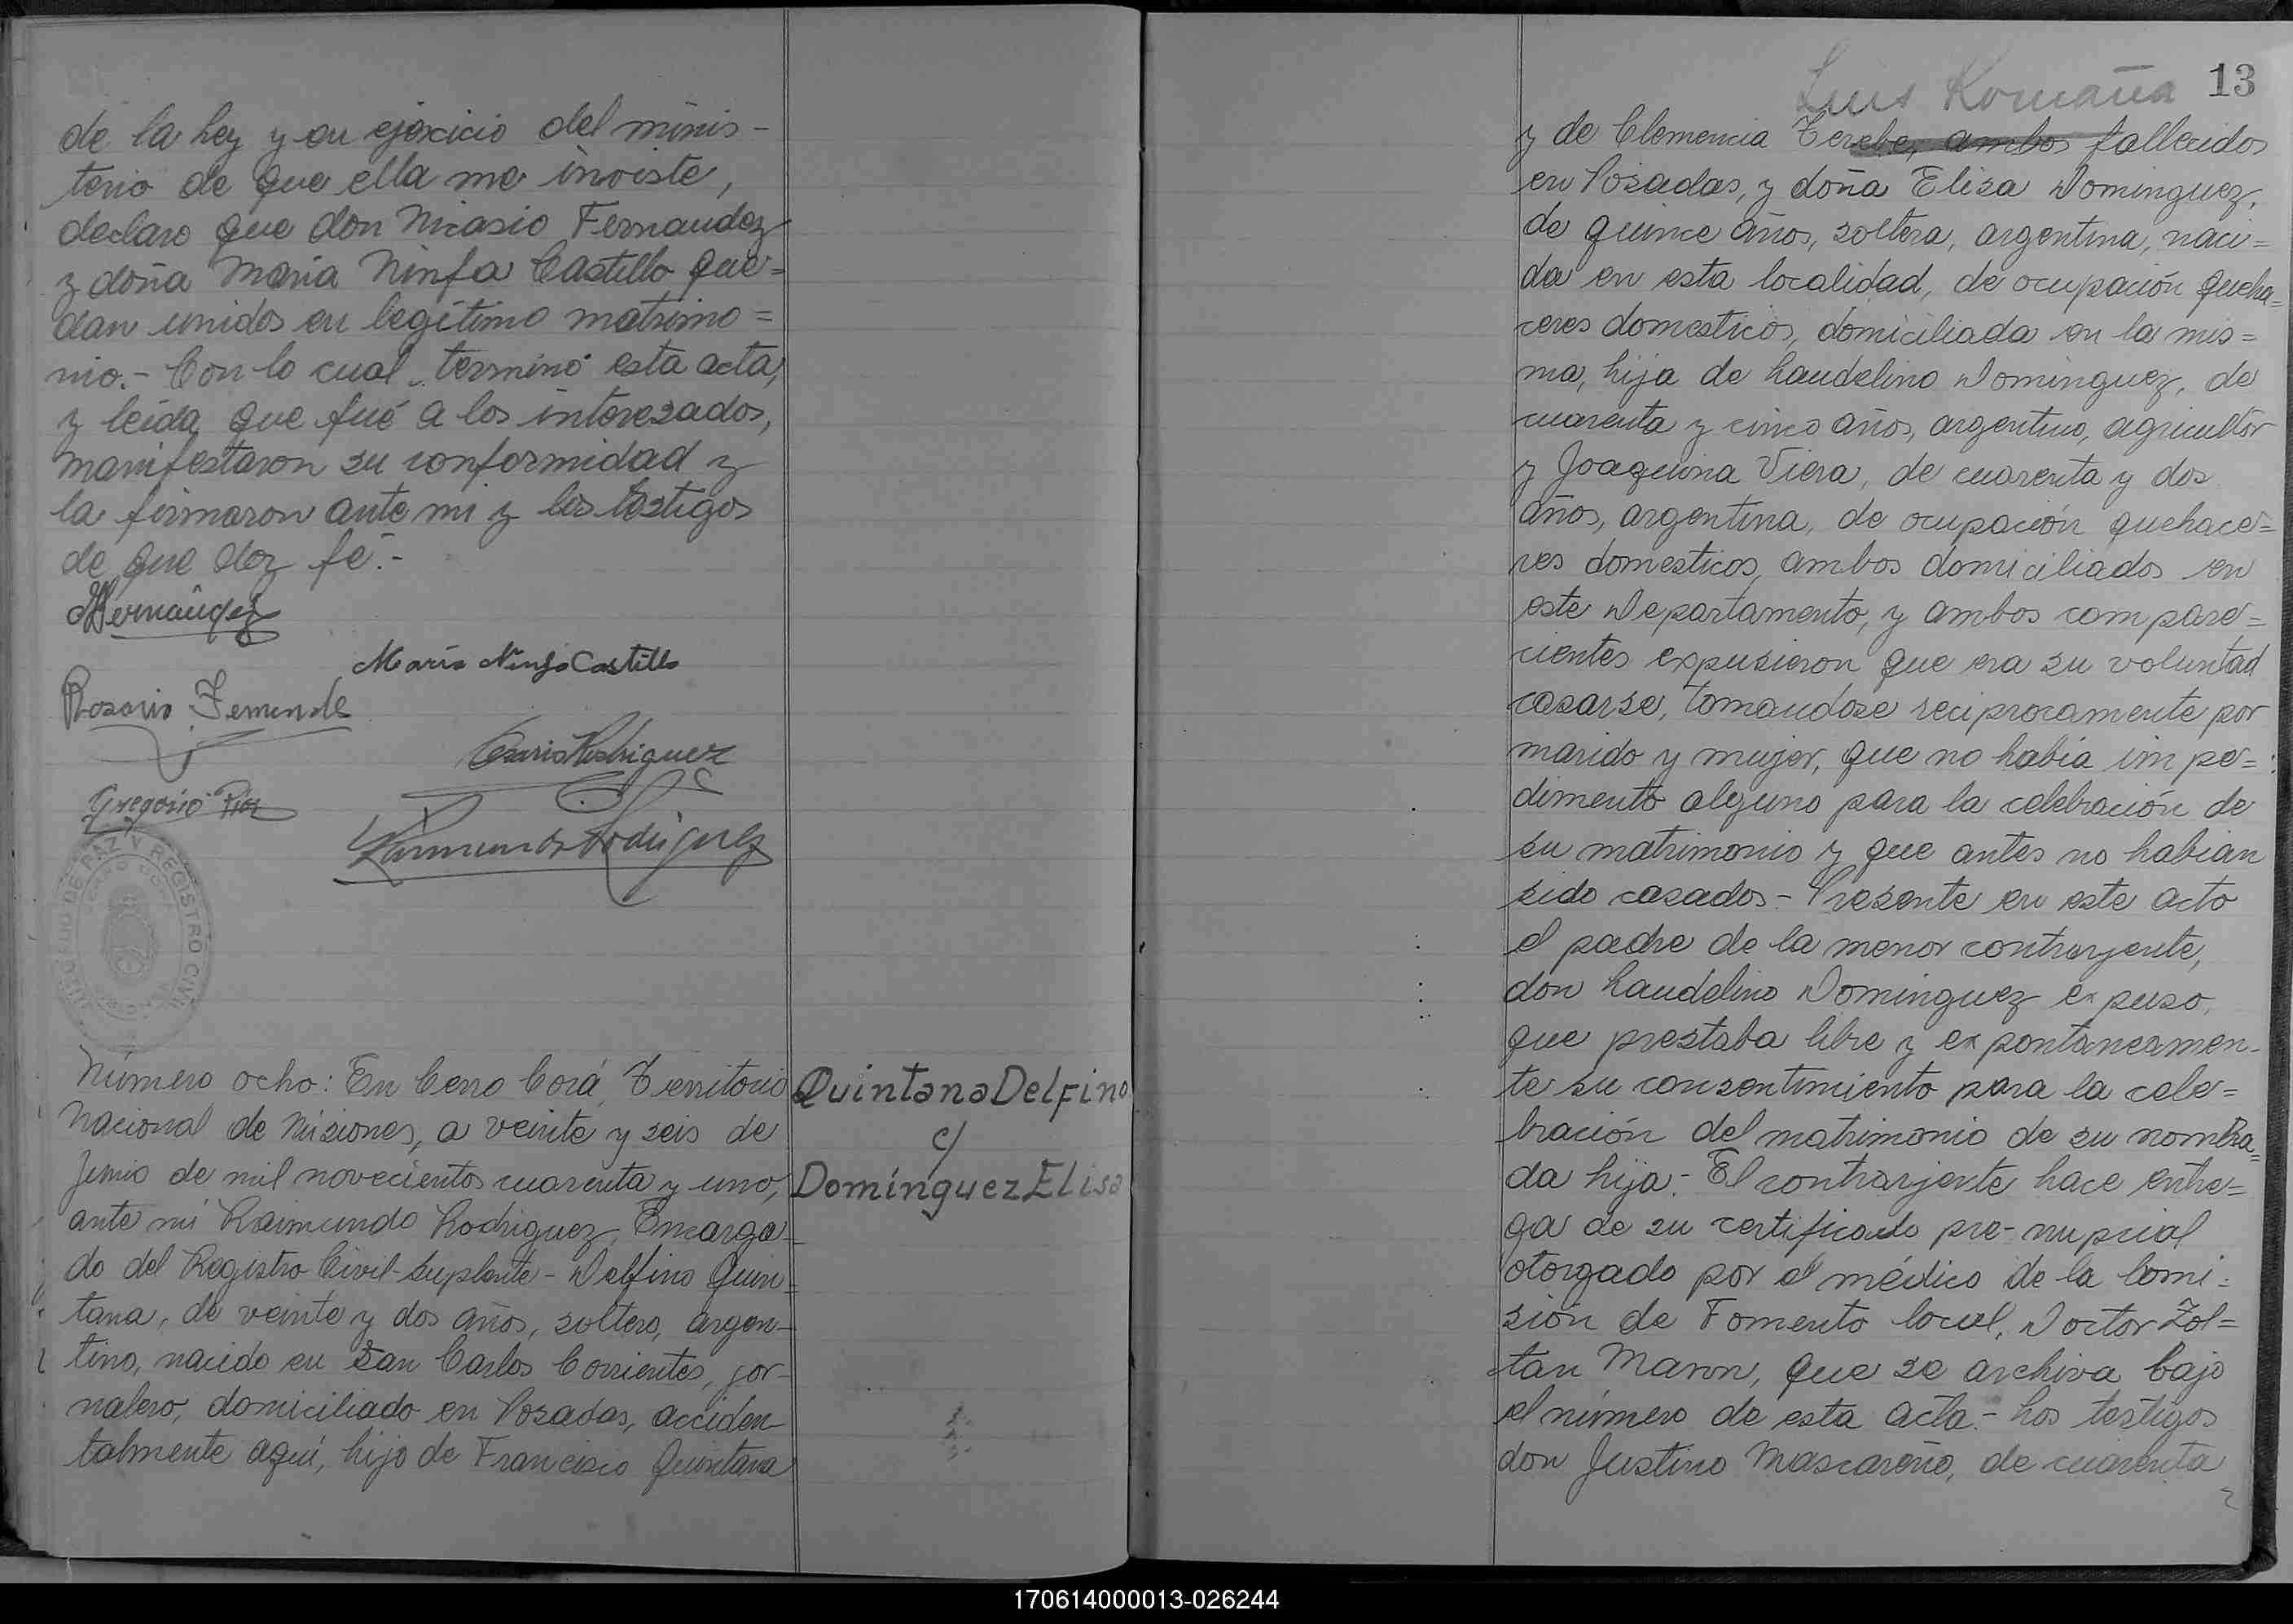 de la Ley y en ejercicio del minis-
terio de que ella me inviste,
declaro que don Nicasio Fernandez
y doña Maria Ninfa Castillo que=
dan unidos en legítimo matrimo=
nio.- Con lo cual terminó esta acta,
y leída que fué a los interesados,
manifestaron su conformidad y
la firmaron ante mi y los testigos
de que doy fé.-
Maria Ninfa Castillo
Rosario
Rodriguez
Gregorio
Raimundo Rodriguez
DE PAZ Y REGISTRO CIVIL
Número ocho: En Cerro Corá, Territorio
Nacional de Misiones, a veinte y seis de
Junio de mil novecientos cuarenta y uno,
ante mi Raimundo Rodriguez, Encarga-
do del Registro Civil-Suplente- Delfino Quin=
tana, de veinte y dos años, soltero, argen-
tino, nacido en San Carlos Corrientes, jor-
nalero, domiciliado en Posadas, acciden-
talmente aquí, hijo de Francisco Quintana
Quintana Delfino
c/
Domínguez Elisa
Luis Romaña
13
y de Clemencia ambos fallecidos
en Posadas, y doña Elisa Dominguez,
de quince años, soltera, argentina, naci=
da en esta localidad, de ocupación queha=
ceres domesticos, domiciliada en la mis=
ma, hija de Laudelino Dominguez, de
cuarenta y cinco años, argentino, agricultor
y Joaquina Viera, de cuarenta y dos
años, argentina, de ocupación quehace=
res domesticos, ambos domiciliados en
este Departamento, y ambos compare=
cientes expusieron que era su voluntad
casarse, tomandose reciprocamente por
marido y mujer, que no había impe=
dimento alguno para la celebración de
su matrimonio y que antes no habian
sido casados- Presente en este acto
el padre de la menor contrayente,
don Laudelino Dominguez expuso,
que prestaba libre y expontaneamen-
te su consentimiento para la cele=
bración del matrimonio de su nombra=
da hija.- El contrarjente hace entre=
ga de su certificado pre-nupcial
otorgado por el médico de la Comi=
sión de Fomento local, Doctor Zol=
tan Maron, que se archiva bajo
el número de esta acta.- Los testigos
don Justino Mascareño, de cuarenta
170614000013-026244